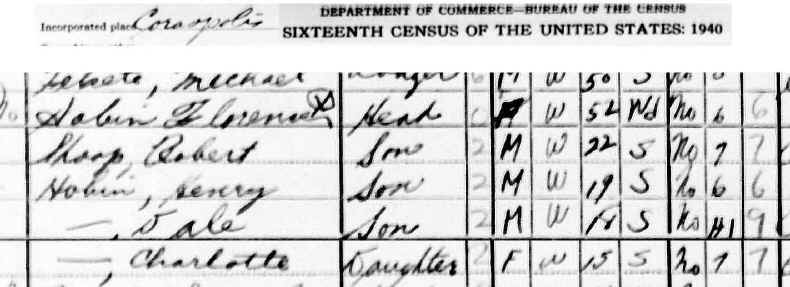 DEPARTMENT OF COMMERCE—BUREAU OF THE CENSUS
Incorporated place Coraopolis
SIXTEENTH CENSUS OF THE UNITED STATES: 1940
Michael M W 50 S No
Hobin Florence X Head F W 52 Wd No 6 6
Shoop, Robert Son 2 M W 22 S No 7 7
Hobin, Henry Son 2 M W 19 S No 6 6
—, Dale Son 2 M W 18 S No H1 9
—, Charlotte Daughter 2 F W 15 S No 7 7